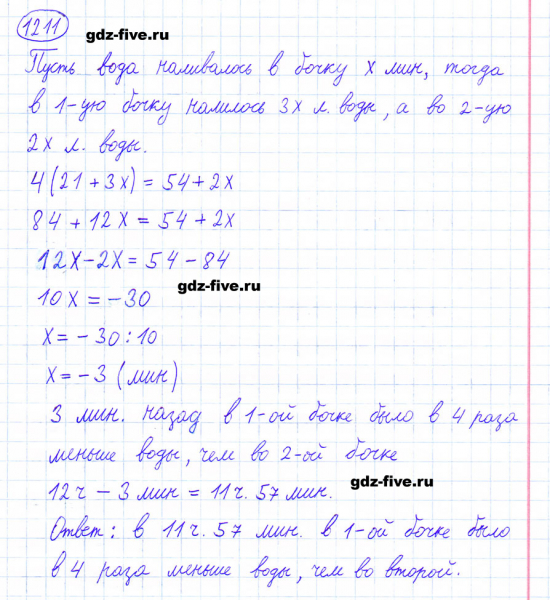 1211
gdz-five.ru
Пусть вода наливалось в бочку x мин, тогда
в 1-ую бочку налилось 3x л. воды, а во 2-ую
2x л. воды.
4(21 + 3x) = 54 + 2x
84 + 12x = 54 + 2x
12x - 2x = 54 - 84
gdz-five.ru
10x = -30
x = -30 : 10
x = -3 (мин)
3 мин. назад в 1-ой бочке было в 4 раза
меньше воды, чем во 2-ой бочке
12 ч - 3 мин = 11 ч. 57 мин.
gdz-five.ru
Ответ: в 11 ч. 57 мин. в 1-ой бочке было
в 4 раза меньше воды, чем во второй.